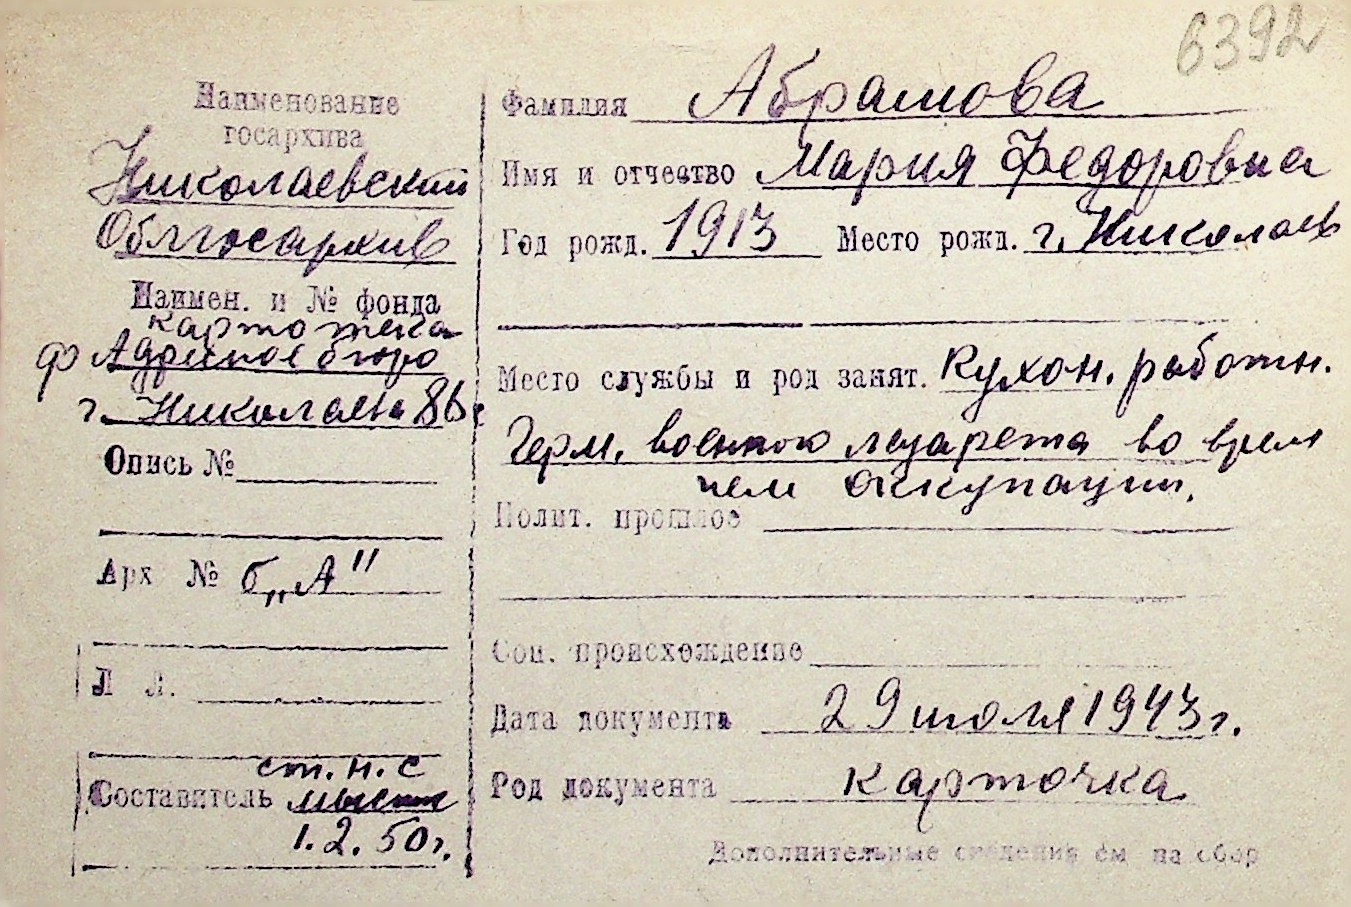 6392
Наименование
госархива
Николаевский
Облгосархив
Наимен. и № фонда
картотека
ф Адресное бюро
г. Николаева
Опись №
Арх № б„А"
Л Л.
ст. н. с
Составитель
1. 2. 50г.
Фамилия Абрамова
Имя и отчество Мария Федоровна
Год рожд. 1913 Место рожд. г. Николаев
Место службы и род занят. Кухон. работн.
Герм. военного лазарета во врем
оккупации.
Полит. прошлое
Соц. происхождение
Дата документа 29 июля 1943 г.
Род документа карточка
Дополнительные сведения см на обор